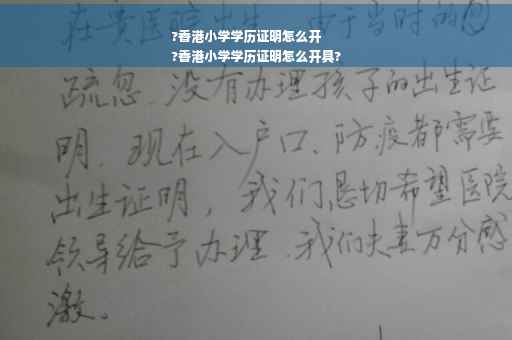 在贵医院出生，由于当时的
?香港小学学历证明怎么开
?香港小学学历证明怎么开具?
疏忽，没有办理孩子的出生证
明．现在入户口、防疫都需要
出生证明，我们恳切希望医院
领导给予办理．我们夫妻万分感
激。